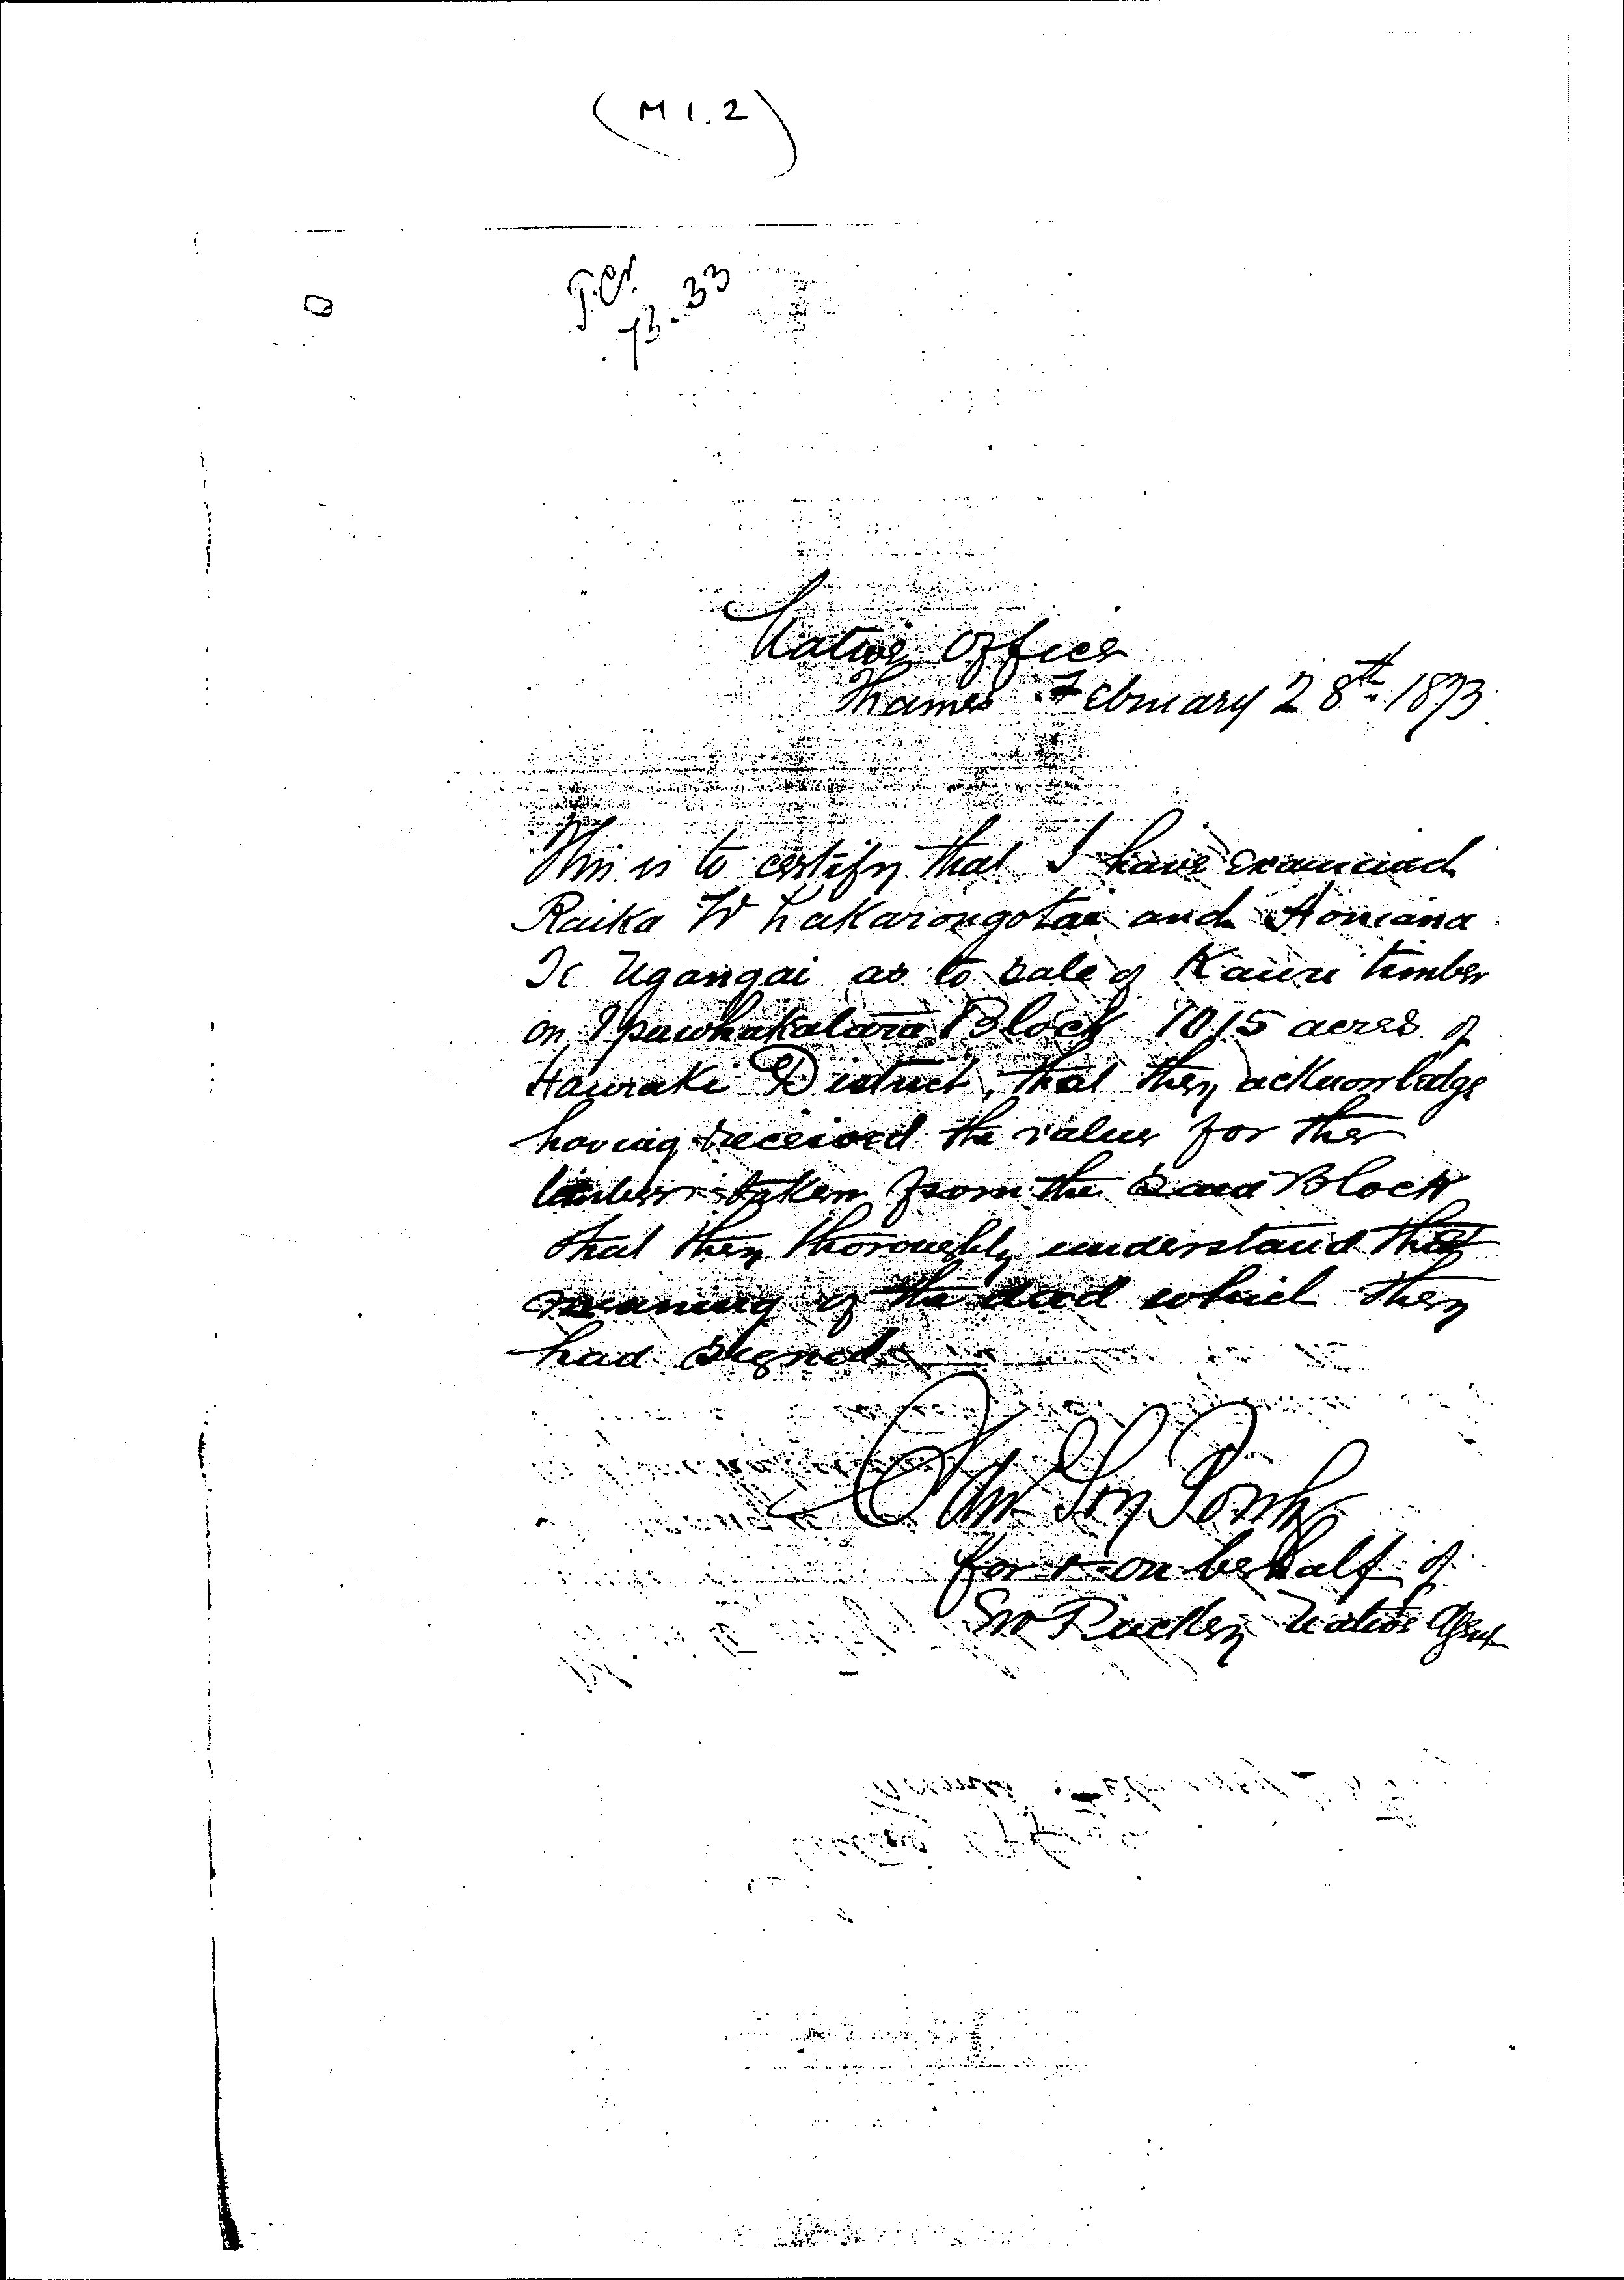 (M 1.2)
73.33
Native Office
Thames February 28th 1873
This is to certify that I have examined
Raika Whakarongotai and Honiana
Te Ngangai as to sale of Kauri timber
on Block 1015 acres of
Hauraki District, that they acknowledge
having received the value for the
timber taken from the Said Block
that they thoroughly understand the
meaning of the deed which they
had signed
for & on behalf of
Puckey Native Agent